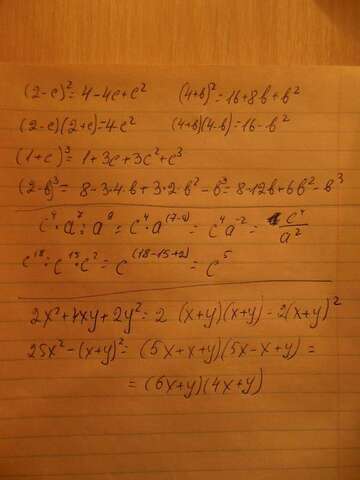 (2-c)² = 4-4c+c² (4+b)² = 16+8b+b²
(2-c)(2+c)=4-c² (4+b)(4-b)=16-b²
(1+c)³ = 1+3c+3c²+c³
(2-b)³ = 8-3·4b+3·2·b²-b³ = 8-12b+6b²-b³
c⁴·a⁷:a⁹ = c⁴a⁽⁷⁻⁹⁾ = c⁴a⁻² = c⁴/a²
c¹⁸:c¹⁵·c² = c⁽¹⁸⁻¹⁵⁺²⁾ = c⁵
2x²+4xy+2y² = 2 (x+y)(x+y) = 2(x+y)²
25x²-(x+y)² = (5x+x+y)(5x-x+y) =
= (6x+y)(4x+y)